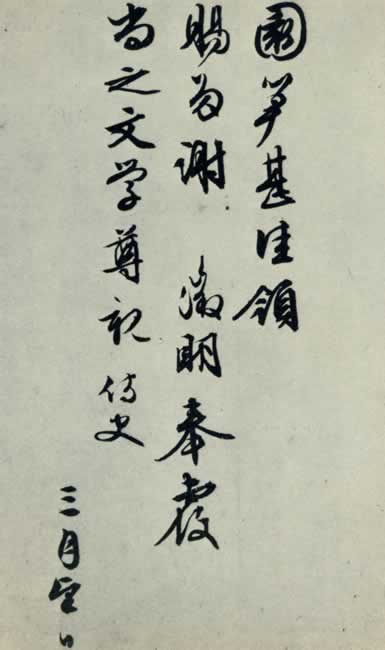 園笋甚佳領
賜多謝 徵明奉覆
尚之文学尊親 侍史
三月望日